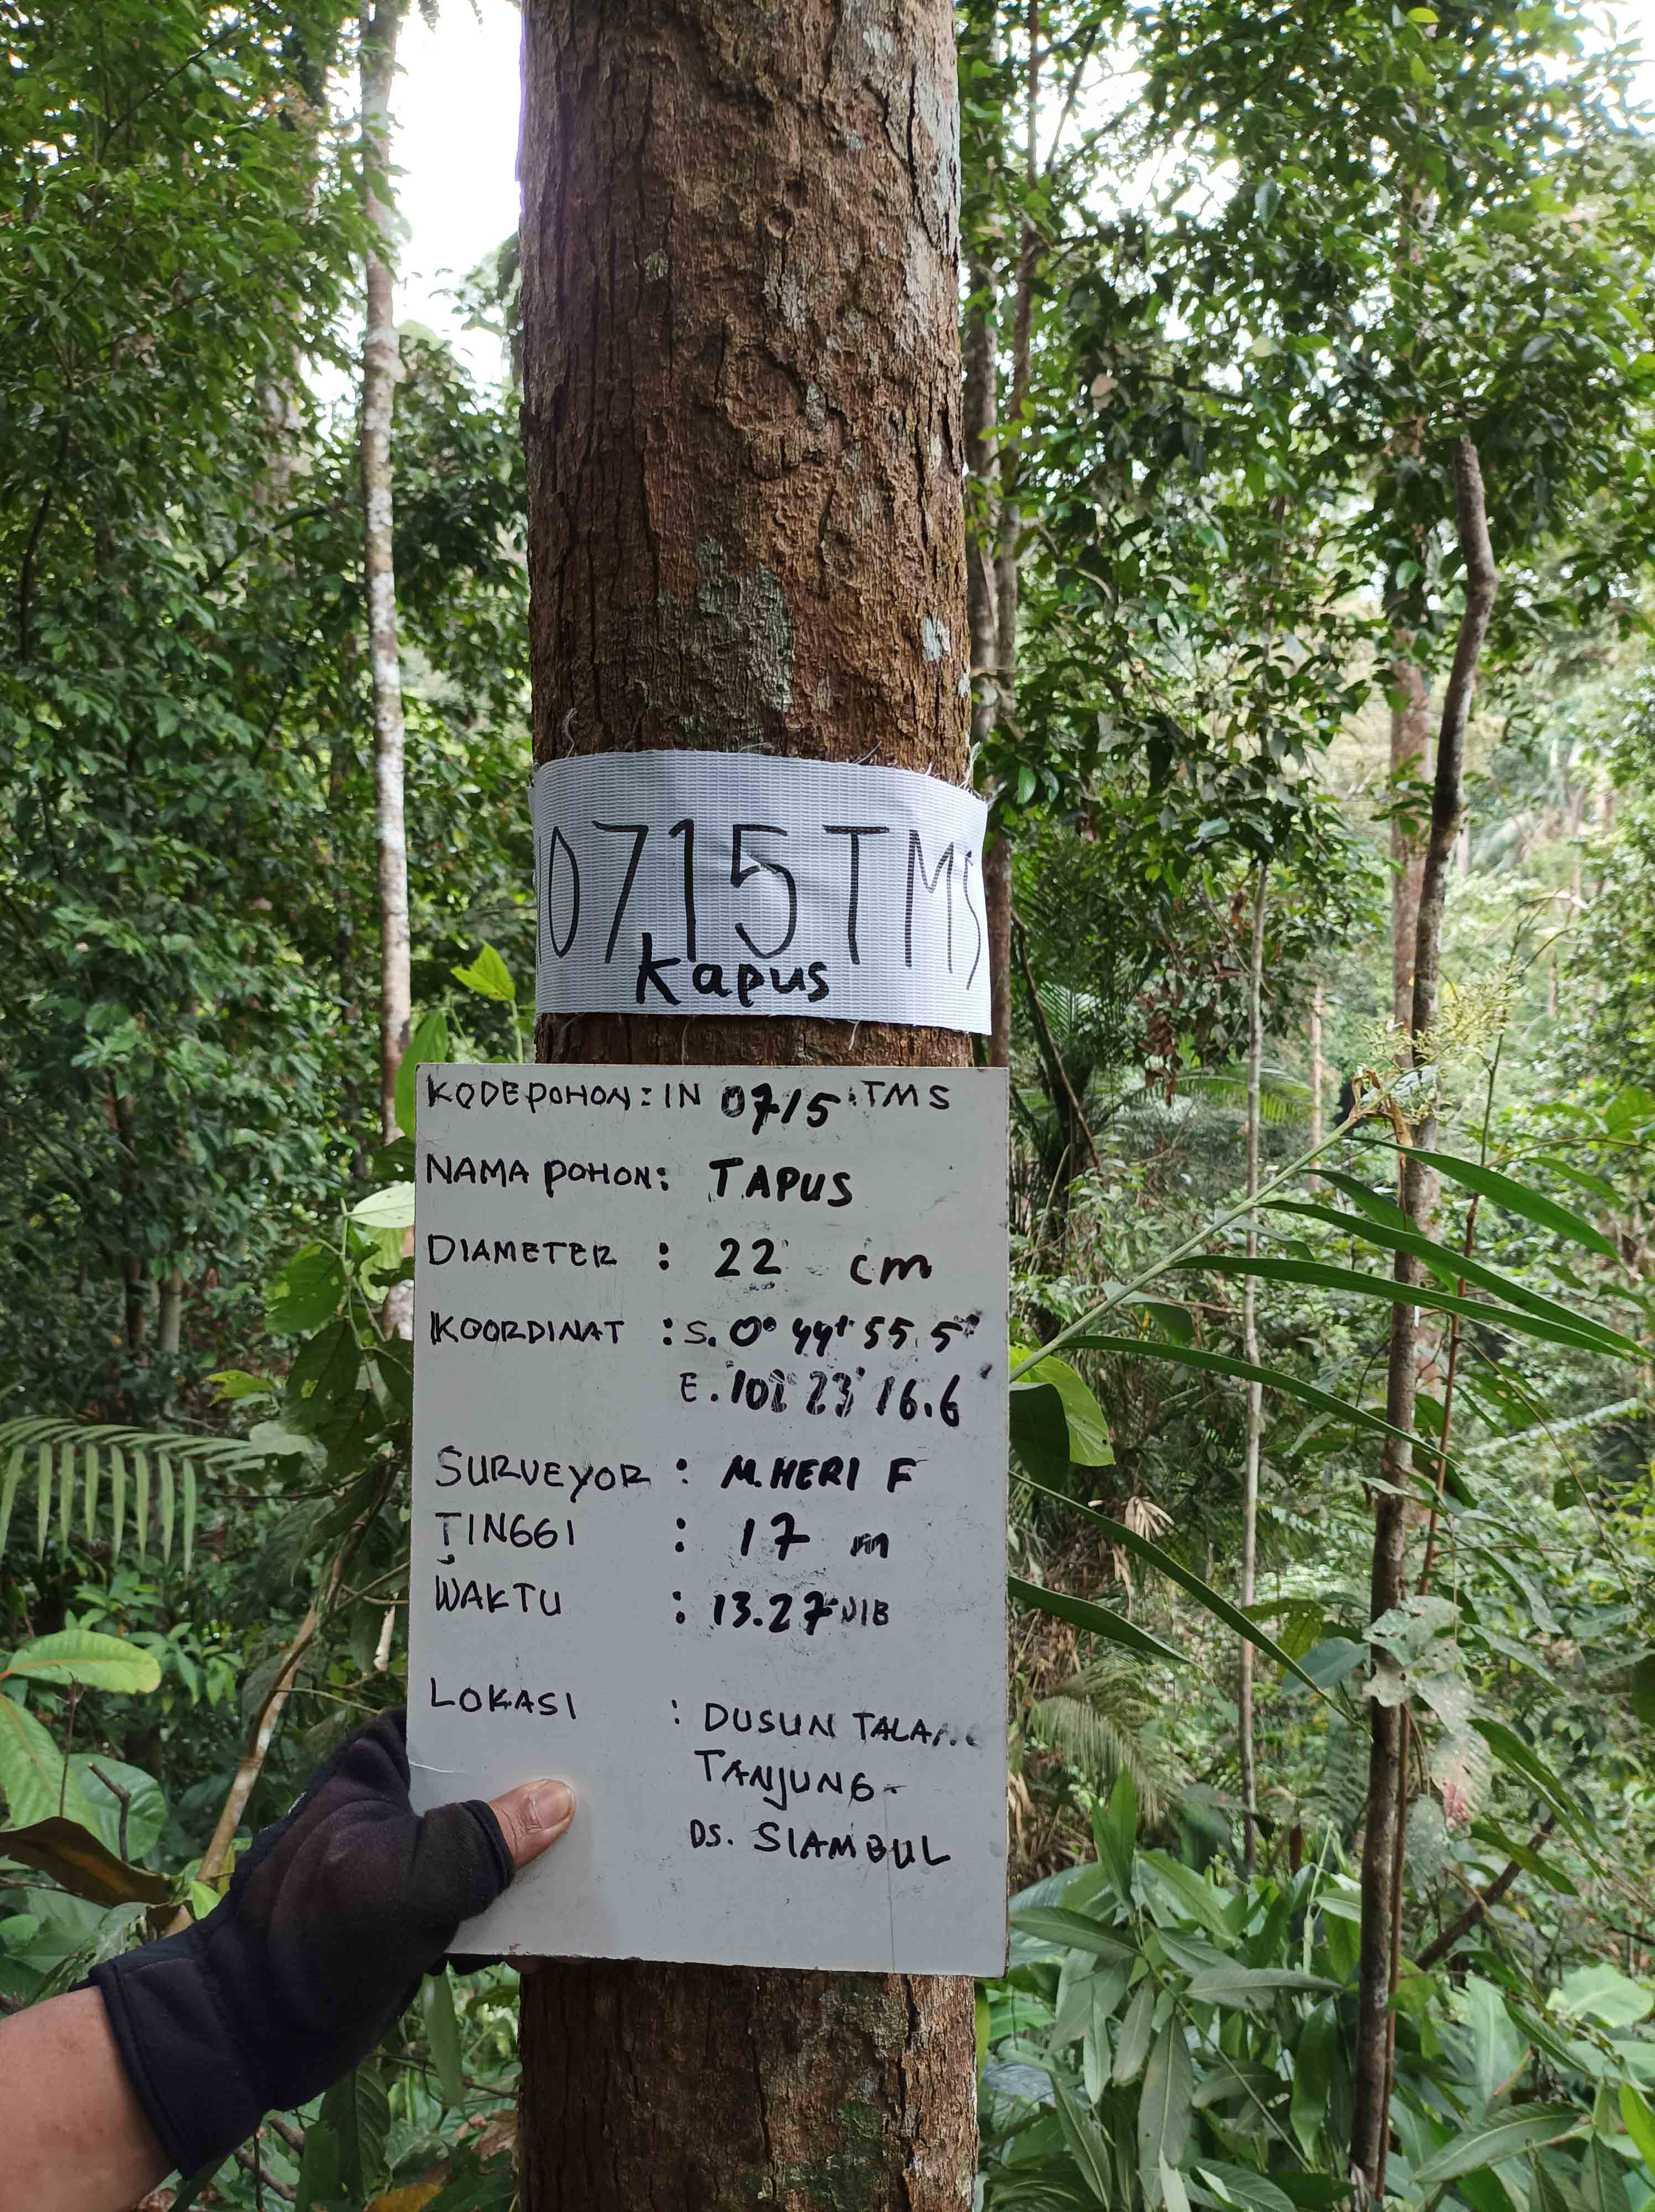 0715 TMS
Kapus
KODE POHON: IN 0715 TMS
NAMA POHON: TAPUS
DIAMETER : 22 cm
KOORDINAT : S. 0° 44' 55.5"
E. 102° 23' 16.6
SURVEYOR : M.HERI F
TINGGI : 17 m
WAKTU : 13.27 WIB
LOKASI : DUSUN TALANG
TANJUNG-
DS. SIAMBUL